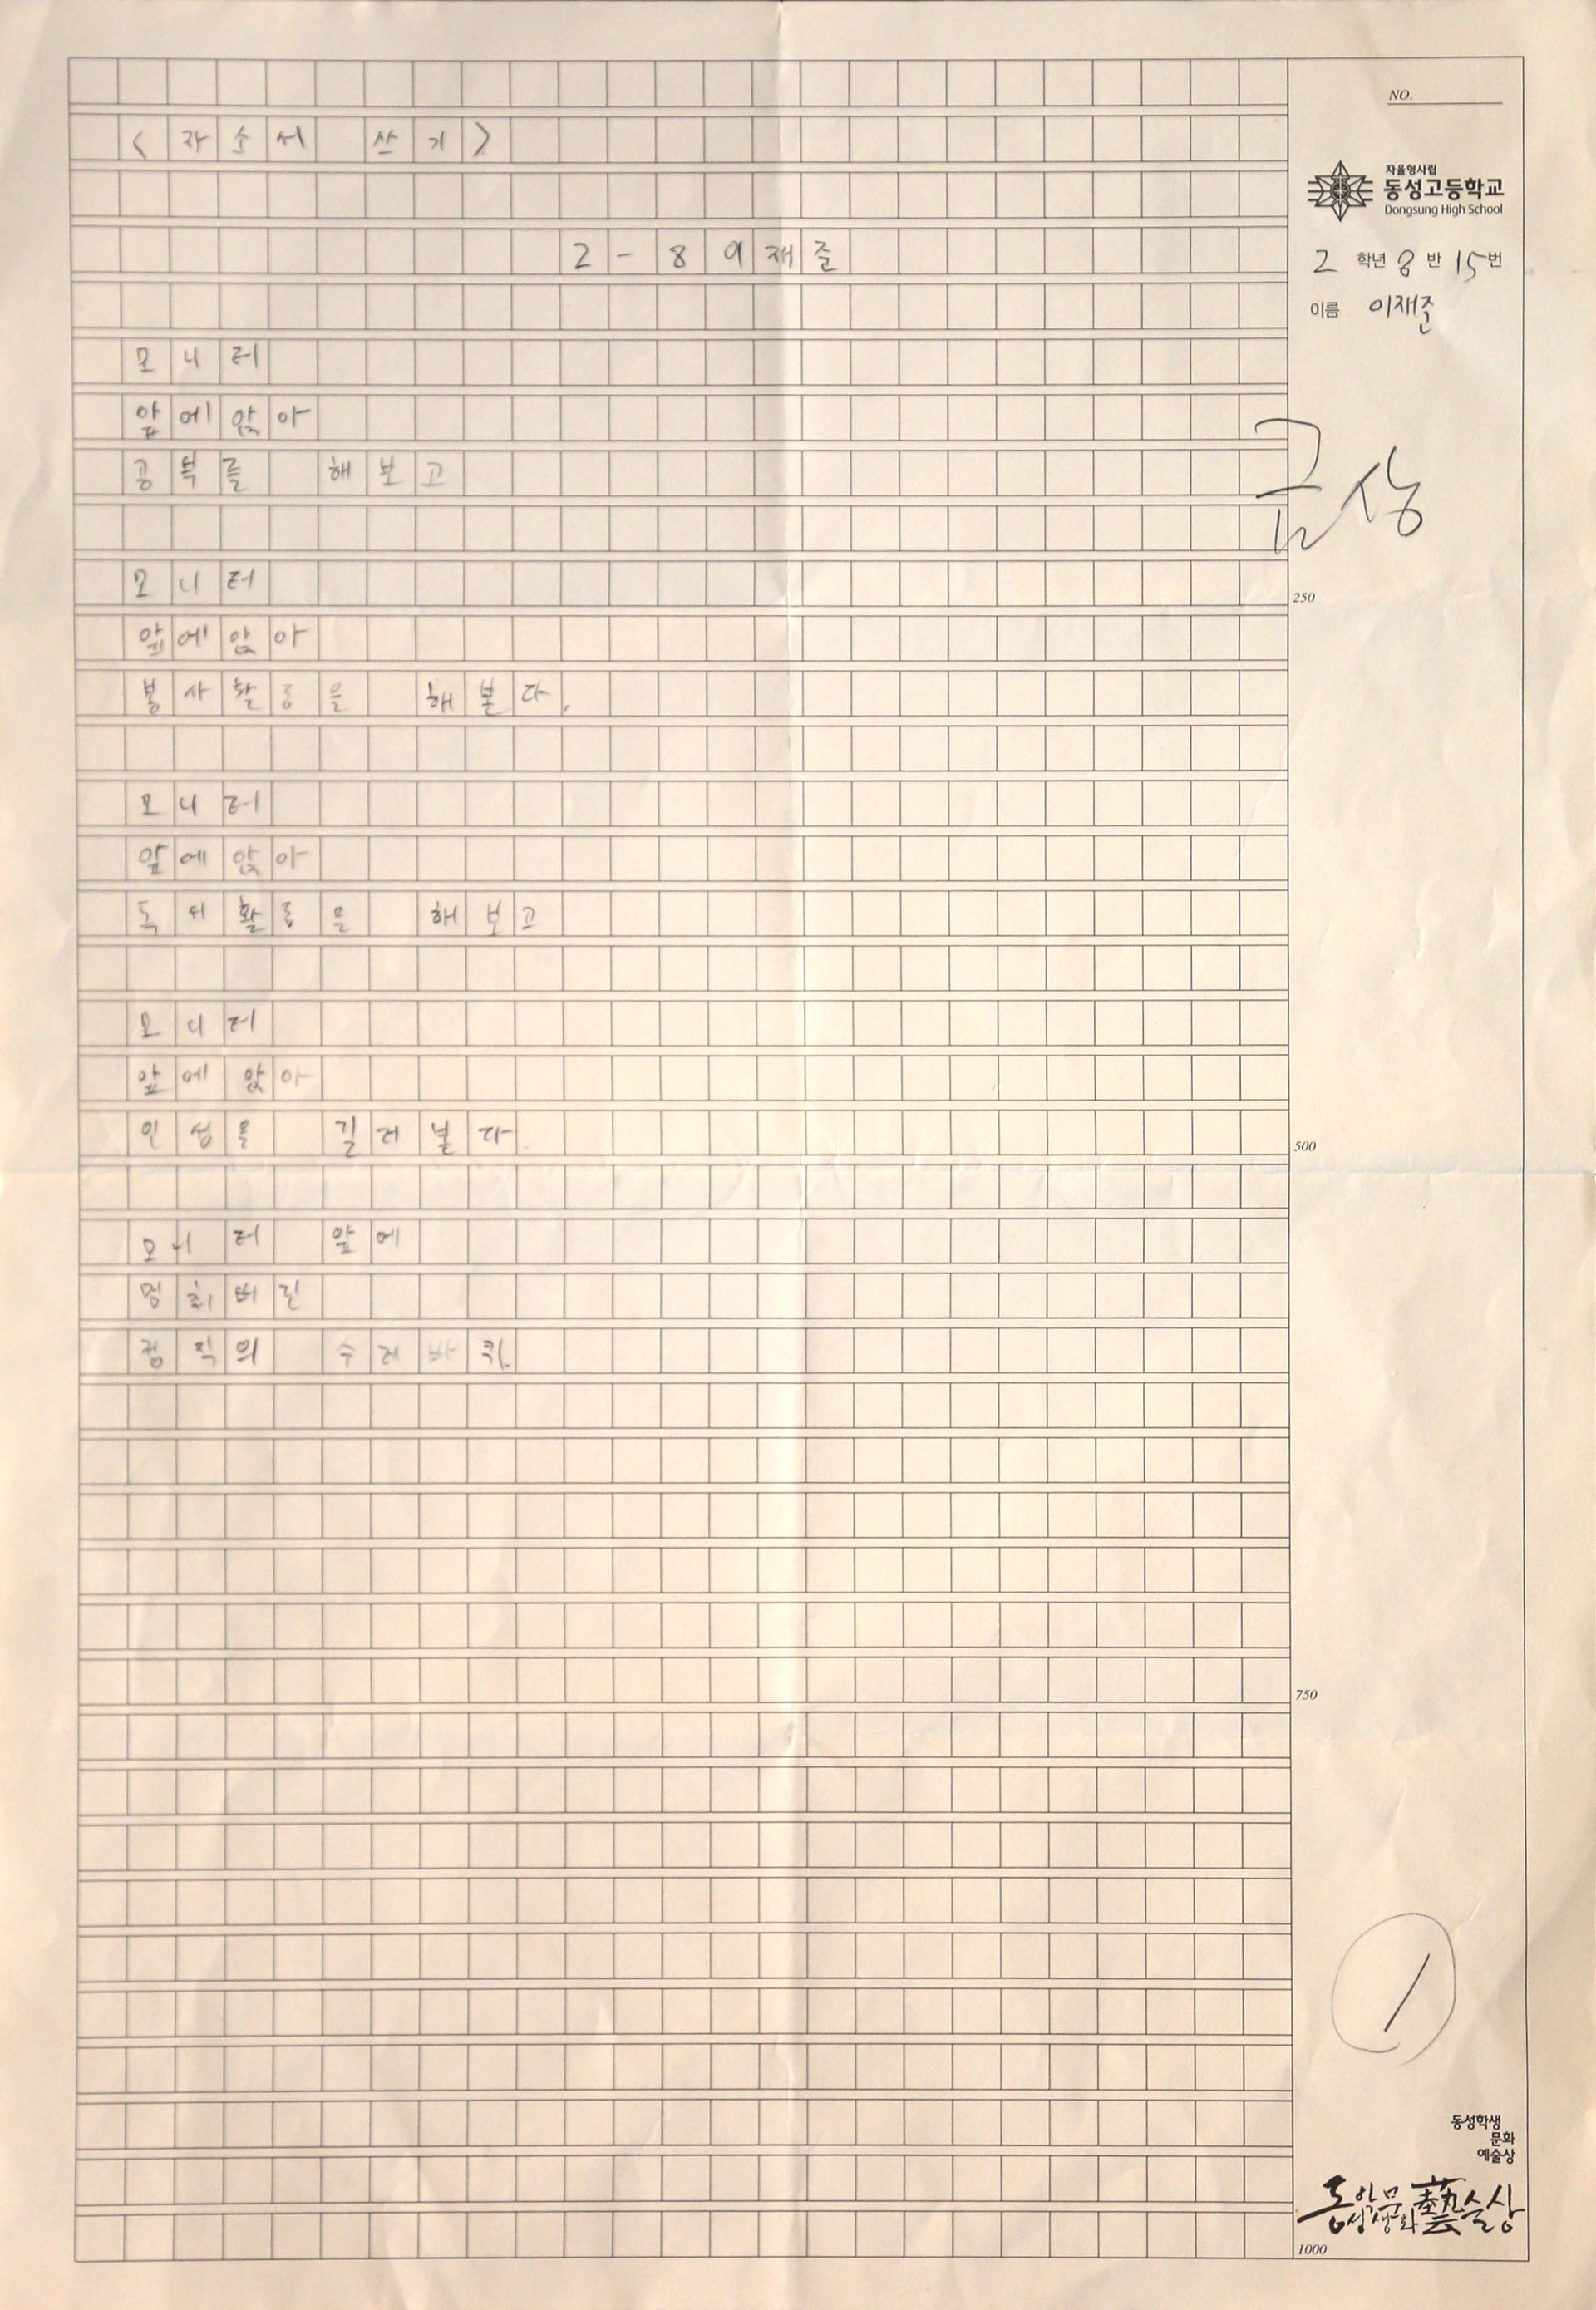 NO.
<자소서 쓰기>
자율형사립
동성고등학교
Dongsung High School
2-8 이재준
2 학년 8 반 15 번
이름 이재준
모니터
앞에 앉아
공부를 해보고
금상
모니터
앞에 앉아
봉사활동을 해본다.
250
모니터
앞에 앉아
독서활동을 해보고
모니터
앞에 앉아
인성을 길러본다.
500
모니터 앞에
멈춰버린
정직의 수레바퀴.
750
1
동성학생
문화
예술상
동성학생문화藝술상
1000